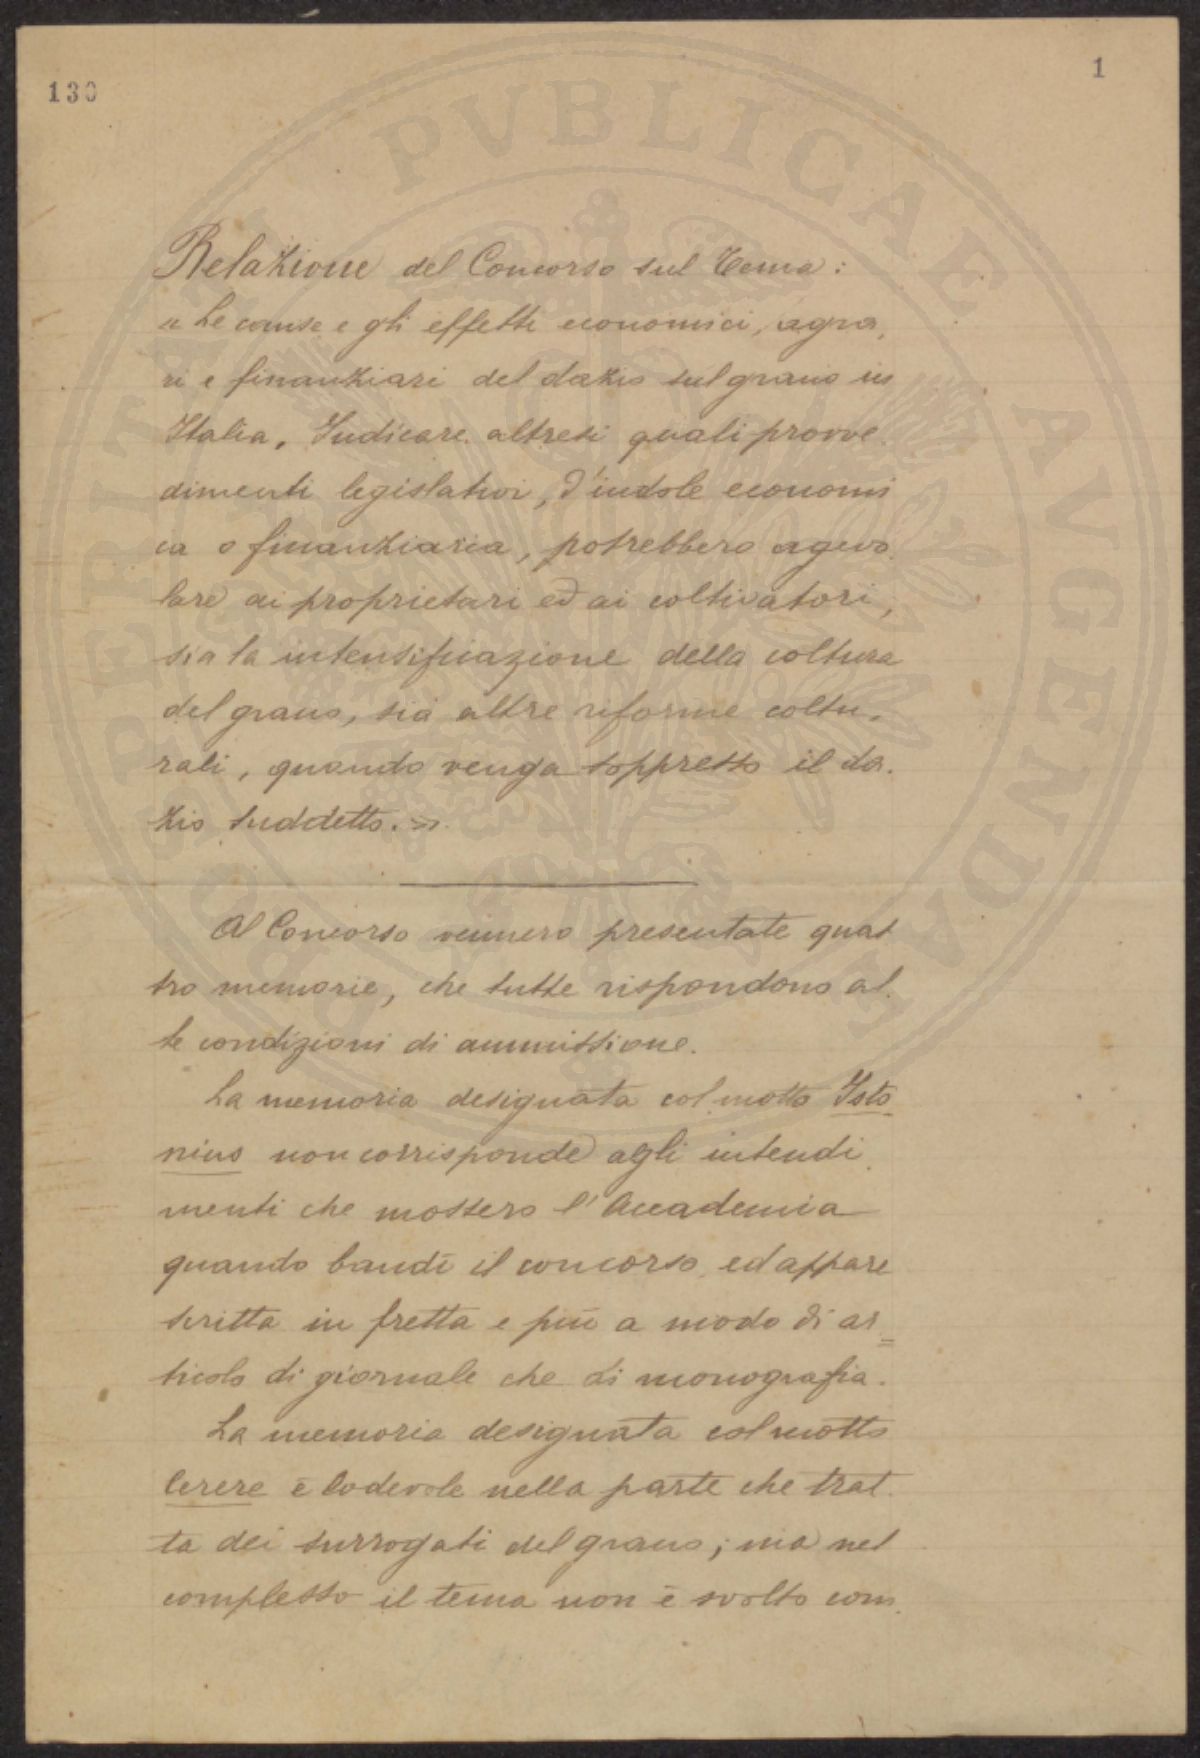 130
1
PROSPERITATI PVBLICAE AVGENDAE
Relazione del Concorso sul Tema:
« Le cause e gli effetti economici, agra,
ri e finanziari del dazio sul grano in
Italia. Indicare altresì quali provve.
dimenti legislativi, d'indole economi
ca o finanziaria, potrebbero agevo.
lare ai proprietari ed ai coltivatori,
sia la intensificazione della coltura
del grano, sia altre riforme coltu.
rali, quando venga soppresso il da.
zio suddetto. »
Al Concorso vennero presentate quat
tro memorie, che tutte rispondono al.
le condizioni di ammissione.
La memoria designata col motto Isto
nius non corrisponde agli intendi.
menti che mossero l'Accademia
quando bandì il concorso, ed appare
scritta in fretta e più a modo di ar=
ticolo di giornale che di monografia.
La memoria designata col motto
Cerere è lodevole nella parte che trat.
ta dei surrogati del grano; ma nel
complesso il tema non è svolto com.